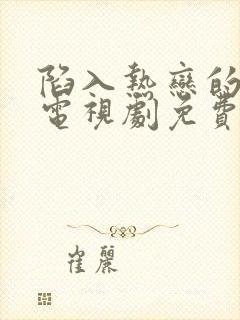 陷入熱戀的
電視劇免費
崔麗